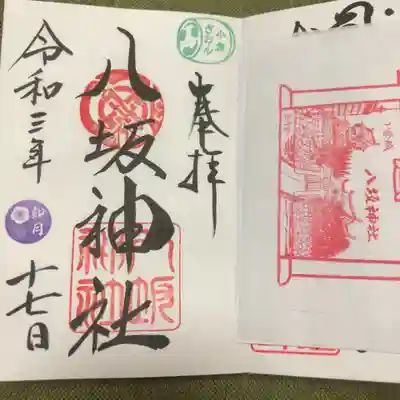 奉拝
小倉
ぎおん
八坂神社
八坂神社
令和三年
卯月
十七日
八坂神社